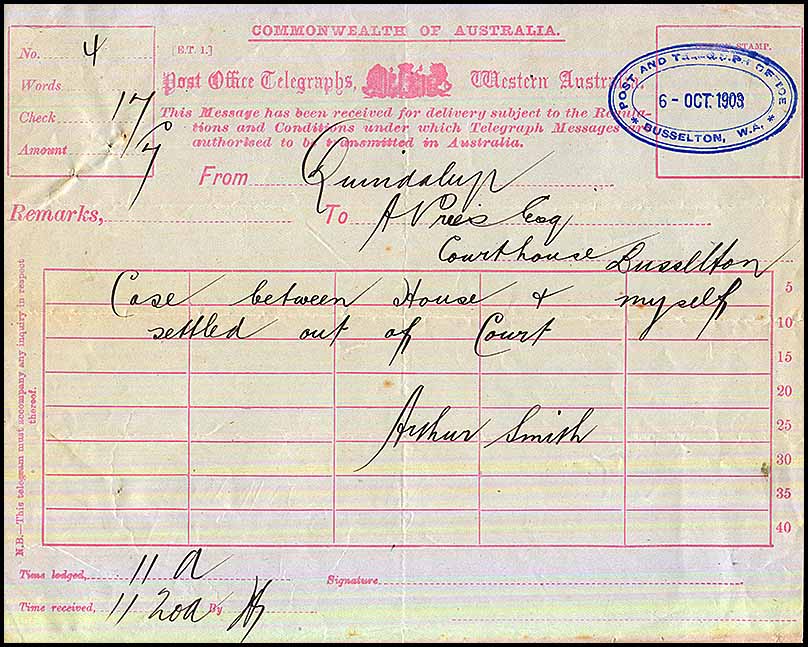 COMMONWEALTH OF AUSTRALIA.
No. 4
[E.T. 1.]
Words
Post Office Telegraphs, Western Australia.
Check 17
Amount
This Message has been received for delivery subject to the Regula-
tions and Conditions under which Telegraph Messages are
authorised to be transmitted in Australia.
STAMP.
POST AND TELEGRAPH OFFICE
6 - OCT. 1903
* BUSSELTON, W.A. *
From Quindalup
Remarks, To A Prees Esq
Courthouse Busselton
Case between House & myself 5
settled out of Court 10
15
20
Arthur Smith 25
30
35
40
N.B.—This telegram must accompany any inquiry in respect
thereof.
Time lodged, 11 a Signature
Time received, 11 20a By